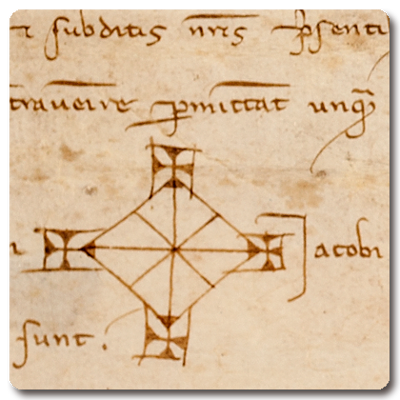 ⁊ subditis nr̄is p̄senti
traueire ꝑmittat unqua̅
Jacobi
sunt.